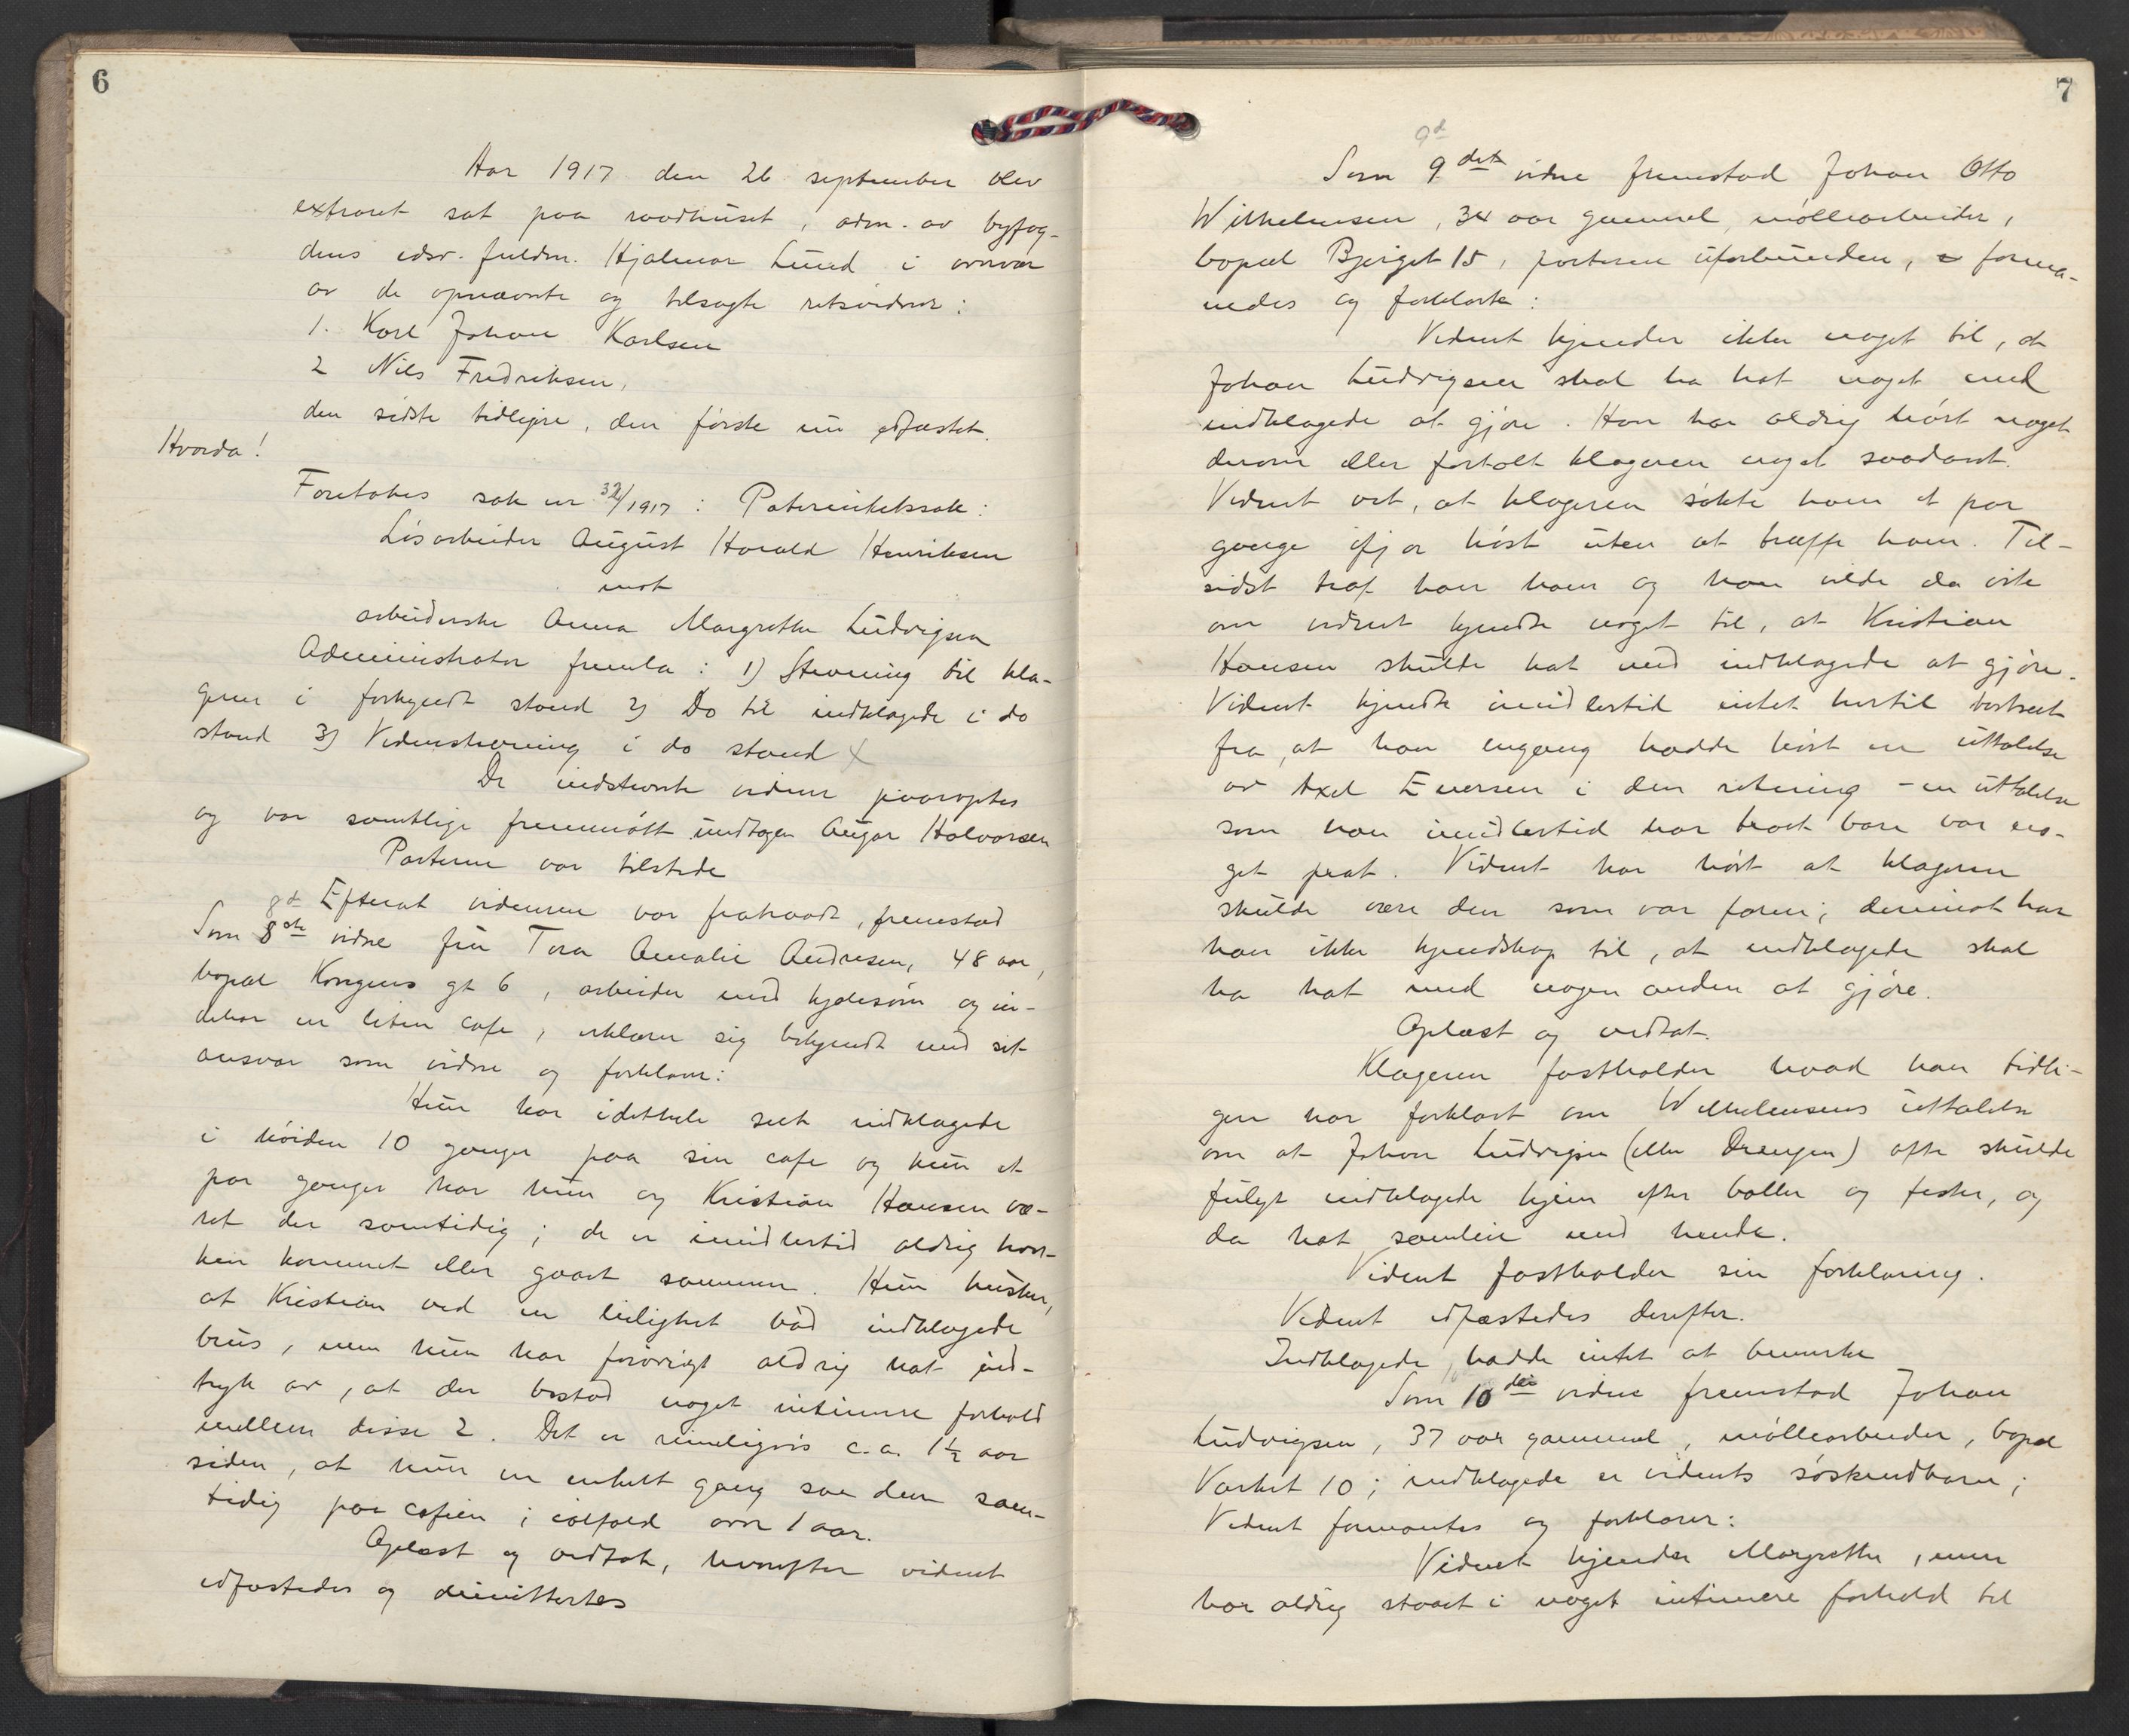 6
Aar 1917 den 26 september blev
extraret sat paa raadhuset, adm. av byfog-
dens edsv. fuldm. Hjalmar Lund i nærvær
av de opnævnte og tilsagte retsvidner:
1. Karl Johan Karlsen
2 Nils Fredriksen,
den sidste tidligere, den første nu edfæstet.
Hvorda!
Foretokes sak nr 32/1917 : Paternitetssak:
Løsarbeider August Harald Henriksen
mot
arbeiderske Anna Margrethe Ludvigsen
Administrator fremla: 1) Stevning til kla-
geren i forkyndt stand 2) Do til indklagede i do
stand 3) Vidnestevning i do stand X
De indstevnte vidner paaroptes
og var samtlige fremmøtt undtagen Aagar Halvorsen
Parterne var tilstede
8d Efterat vidnerne var fratraadt, fremstod
Som 8de vidne fru Tora Amalie Andresen, 48 aar,
bopæl Kongens gt 6, arbeider med kjolesøm og in-
dehar en liten cafe, erklærer sig bekjendt med sit
ansvar som vidne og forklarer:
Hun har idethele seet indklagede
i høiden 10 ganger paa sin cafe og kun et
par ganger har hun og Kristian Hansen væ-
ret der samtidig; de er imidlertid aldrig hver-
ken kommet eller gaaet sammen. Hun husker,
at Kristian ved en leilighet bød indklagede
brus, men hun har forøvrigt aldrig hat ind-
tryk av, at der bestod noget intimere forhold
mellem disse 2. Det er rimeligvis c.a. 1½ aar
siden, at hun en enkelt gang saa dem sam-
tidig paa cafeen, ialfald over 1 aar.
Oplæst og vedtat, hvorefter vidnet
edfæstedes og dimittertes
7
9d
Som 9det vidne fremstod Johan Otto
Wilhelmsen, 34 aar gammel, møllearbeider,
bopæl Bjerget 15, parterne uforbunden, forma-
nedes og forklarte:
Vidnet kjender ikke noget til, at
Johan Ludvigsen skal ha hat noget med
indklagede at gjøre. Han har aldrig hørt noget
derom eller fortalt klageren noget saadant.
Vidnet vet, at klageren søkte ham et par
gange ifjor høst uten at træffe ham. Til-
sidst traf han ham og han vilde da vite
om vidnet kjendte noget til, at Kristian
Hansen skulde hat med indklagede at gjøre.
Vidnet kjendte imidlertid intet hertil bortseet
fra, at han engang hadde hørt en uttalelse
av Axel Evensen i den retning - en uttalelse
som han imidlertid har troet bare var no-
get prat. Vidnet har hørt at klageren
skulde være den som var faren; derimot har
han ikke kjendskap til, at indklagede skal
ha hat med nogen anden at gjøre.
Oplæst og vedtat.
Klageren fastholder hvad han tidli-
gere har forklart om Wilhelmsens uttalelse
om at Johan Ludvigsen (eller Drengen) ofte skulde
fulgt indklagede hjem efter baller og fester, og
da hat samleie med hende.
Vidnet fastholder sin forklaring.
Vidnet edfæstedes derefter.
Indklagede hadde intet at bemerke
Som 10de vidne fremstod Johan
Ludvigsen, 37 aar gammel, møllearbeider, bopæl
Værket 10; indklagede er vidnets søskendbarn;
Vidnet formantes og forklarer:
Vidnet kjender Margrethe, men
har aldrig staaet i noget intimere forhold til